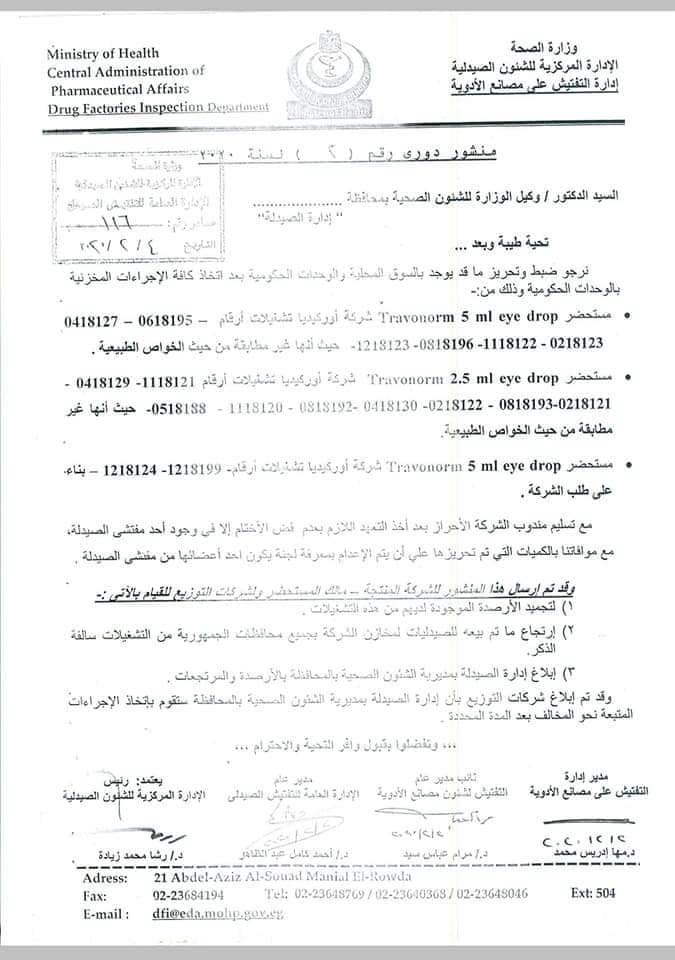 Ministry of Health
Central Administration of
Pharmaceutical Affairs
Drug Factories Inspection Department
وزارة الصحة
الإدارة المركزية للشئون الصيدلية
إدارة التفتيش على مصانع الأدوية
منشور دورى رقم ( ٢ ) لسنة ٢٠٢٠
وزارة الصحة
الإدارة المركزية للشئون الصيدلية
الإدارة العامة للتفتيش الصيدلى
صادر رقم: ١١٦
التاريخ ٤ / ٢ / ٢٠٢٠
السيد الدكتور / وكيل الوزارة للشئون الصحية بمحافظة ....................
" إدارة الصيدلة"
تحية طيبة وبعد ...
نرجو ضبط وتحريز ما قد يوجد بالسوق المحلية والوحدات الحكومية بعد اتخاذ كافة الإجراءات المخزنية
بالوحدات الحكومية وذلك من:-
• مستحضر Travonorm 5 ml eye drop شركة أوركيديا تشغيلات أرقام – 0618195 – 0418127
0218123 - 1118122 - 0818196 -1218123- حيث أنها غير مطابقة من حيث الخواص الطبيعية .
• مستحضر Travonorm 2.5 ml eye drop شركة أوركيديا تشغيلات أرقام 1118121- 0418129 -
0218121-0818193 - 0218122- 0418130 -0818192 - 1118120 - 0518188- حيث أنها غير
مطابقة من حيث الخواص الطبيعية.
• مستحضر Travonorm 5 ml eye drop شركة أوركيديا تشغيلات أرقام- 1218199- 1218124 – بناء
على طلب الشركة .
مع تسليم مندوب الشركة الأحراز بعد أخذ التعهد اللازم بعدم فض الأختام إلا فى وجود أحد مفتشى الصيدلة،
مع موافاتنا بالكميات التي تم تحريزها علي أن يتم الإعدام بمعرفة لجنة يكون احد أعضائها من مفتشى الصيدلة .
وقد تم إرسال هذا المنشور للشركة المنتجة – مالك المستحضر ولشركات التوزيع للقيام بالآتي :-
١) لتجميد الأرصدة الموجودة لديهم من هذه التشغيلات .
٢) إرتجاع ما تم بيعه للصيدليات لمخازن الشركة بجميع محافظات الجمهورية من التشغيلات سالفة
الذكر.
٣) إبلاغ إدارة الصيدلة بمديرية الشئون الصحية بالمحافظة بالأرصدة والمرتجعات .
وقد تم إبلاغ شركات التوزيع بأن إدارة الصيدلة بمديرية الشئون الصحية بالمحافظة ستقوم بإتخاذ الإجراءات
المتبعة نحو المخالف بعد المدة المحددة .
... وتفضلوا بقبول وافر التحية والاحترام ...
مدير إدارة
التفتيش على مصانع الأدوية
نائب مدير عام
التفتيش لشئون مصانع الأدوية
مدير عام
الإدارة العامة للتفتيش الصيدلى
يعتمد: رئيس
الإدارة المركزية للشئون الصيدلية
٢٠٢٠/٢/٢
د.مها إدريس محمد
د./ مرام عباس سيد
د./ أحمد كامل عبد الظاهر
د./ رشا محمد زيادة
Adress: 21 Abdel-Aziz Al-Souad Manial El-Rowda
Fax: 02-23684194 Tel: 02-23648769 / 02-23640368 / 02-23648046 Ext: 504
E-mail : dfi@eda.mohp.gov.eg